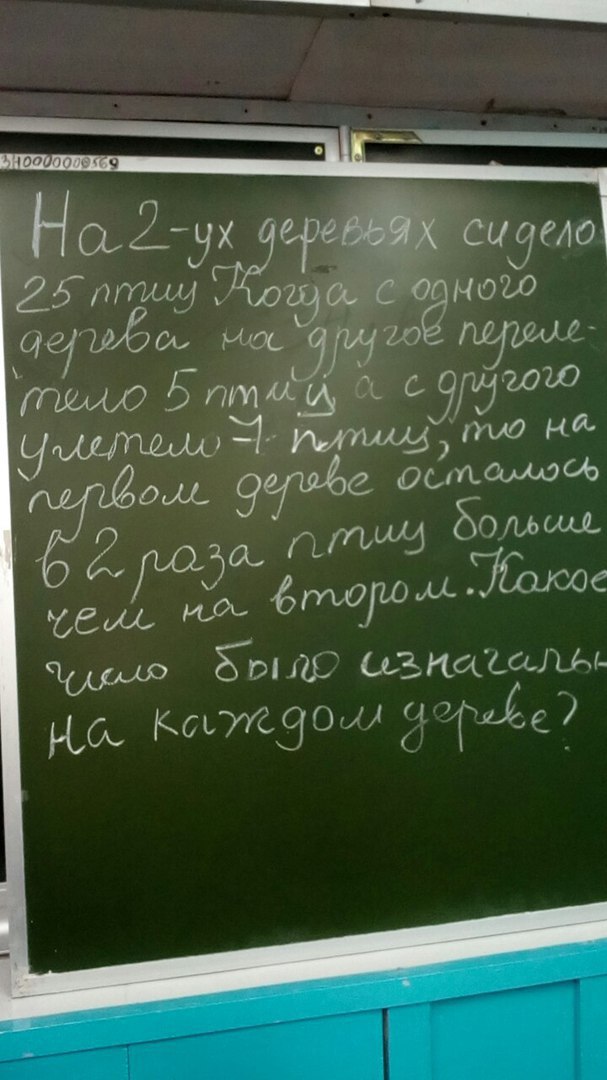 ЗН0000000569
На 2-ух деревьях сидело
25 птиц Когда с одного
дерева на другое переле-
тело 5 птиц а с другого
улетело 7 птиц, то на
первом дереве осталось
в 2 раза птиц больше
чем на втором. Какое
число было изначальн
на каждом дереве?